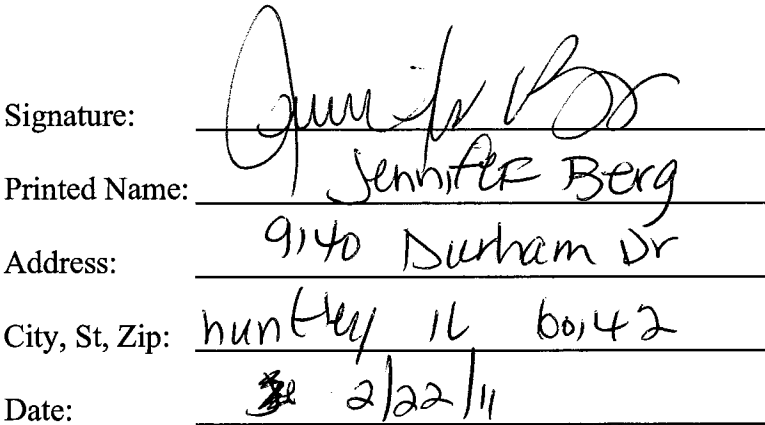 Signature: Jennifer Berg
Printed Name: Jennifer Berg
Address: 9140 Durham Dr
City, St, Zip: huntley IL 60142
Date: 2/22/11